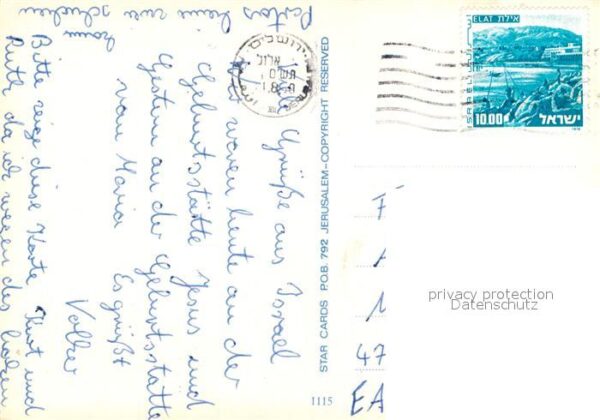 Viele Grüße aus Israel
wir waren heute an der
Geburtsstätte Jesus und
Gestern an der Geburtsstätte
von Maria
Es grüßt
Volker
Bitte zeige diese Karte Kurt und
Ruth da ich wegen des hohen
Portos kann
STAR CARDS P.O.B. 792 JERUSALEM-COPYRIGHT RESERVED
1115
ירושלים
ELAT אילת
ISRAEL
10.00 ישראל
F
A
47
EA
privacy protection
Datenschutz